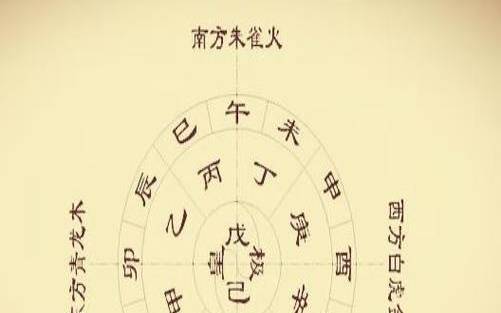 南方朱雀火
午
巳 未
辰 申
卯 酉
丙 丁
乙 庚
甲 辛
戊
皇极
己
东方青龙木
西方白虎金